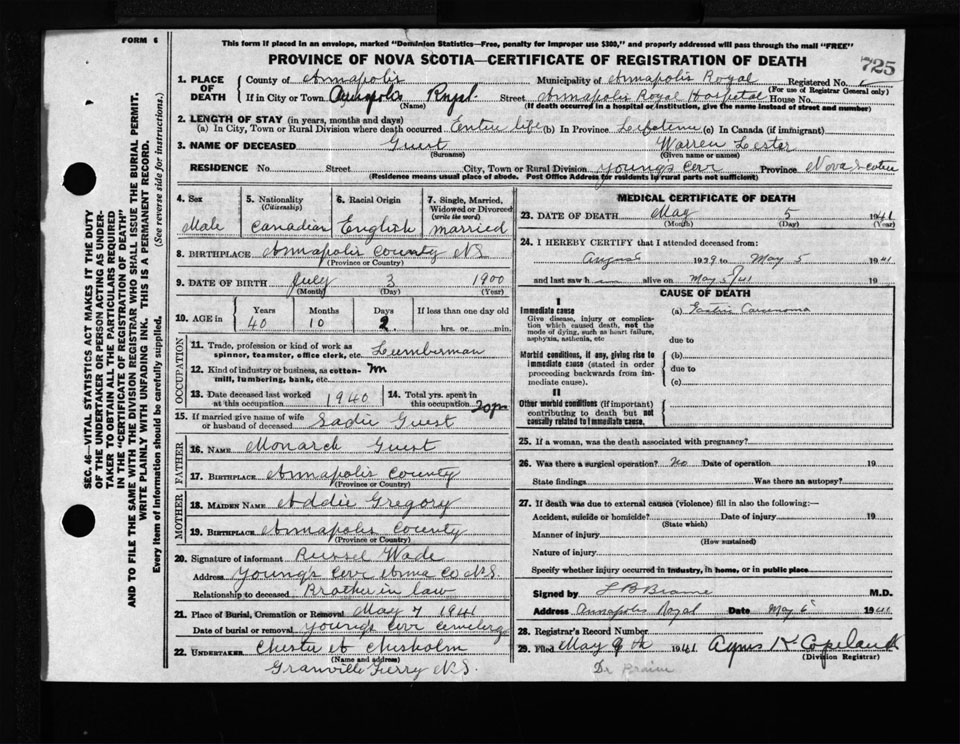 FORM 6
This form if placed in an envelope, marked "Dominion Statistics—Free, penalty for improper use $300," and properly addressed will pass through the mail "FREE"
PROVINCE OF NOVA SCOTIA—CERTIFICATE OF REGISTRATION OF DEATH
725
1. PLACE OF DEATH
County of Annapolis Municipality of Annapolis Royal Registered No.
(For use of Registrar General only)
If in City or Town Annapolis Royal Street Annapolis Royal Hospital House No.
(Name) (If death occurred in a hospital or institution, give the name instead of street and number)
2. LENGTH OF STAY (in years, months and days)
(a) In City, Town or Rural Division where death occurred Entire life (b) In Province Lifetime (c) In Canada (if immigrant)
3. NAME OF DECEASED Guest Warren Lester
(Surname) (Given name or names)
RESIDENCE No. Street City, Town or Rural Division Youngs Cove Province Nova Scotia
(Residence means usual place of abode. Post Office Address for residents by rural parts not sufficient)
4. Sex
Male
5. Nationality (Citizenship)
Canadian
6. Racial Origin
English
7. Single, Married, Widowed or Divorced (write the word)
married
8. BIRTHPLACE Annapolis County NS
(Province or Country)
9. DATE OF BIRTH July 3 1900
(Month) (Day) (Year)
10. AGE in Years Months Days If less than one day old
40 10 2 hrs. or min.
OCCUPATION
11. Trade, profession or kind of work as spinner, teamster, office clerk, etc. Lumberman
12. Kind of industry or business, as cotton-mill, lumbering, bank, etc.
13. Date deceased last worked at this occupation 1940
14. Total yrs. spent in this occupation
15. If married give name of wife or husband of deceased Sadie Guest
FATHER
16. NAME Monarch Guest
17. BIRTHPLACE Annapolis County
(Province or Country)
MOTHER
18. MAIDEN NAME Addie Gregory
19. BIRTHPLACE Annapolis County
(Province or Country)
20. Signature of informant Russel Wade
Address Youngs Cove Anna Co N.S.
Relationship to deceased Brother in law
21. Place of Burial, Cremation or Removal May 7 1941
Date of burial or removal Youngs Cove Cemetery
22. UNDERTAKER Chisholm
(Name and address)
Granville Ferry N.S.
MEDICAL CERTIFICATE OF DEATH
23. DATE OF DEATH May 5 1941
(Month) (Day) (Year)
24. I HEREBY CERTIFY that I attended deceased from:
August 1939 to May 5 1941
and last saw h im alive on May 5/41 19
CAUSE OF DEATH
I
Immediate cause
Give disease, injury or complication which caused death, not the mode of dying, such as heart failure, asphyxia, asthenia, etc
(a) Gastric Carcinoma
due to
Morbid conditions, if any, giving rise to immediate cause (stated in order proceeding backwards from immediate cause).
(b)
due to
(c)
II
Other morbid conditions (if important) contributing to death but not causally related to immediate cause.
25. If a woman, was the death associated with pregnancy?
26. Was there a surgical operation? No Date of operation 19
State findings Was there an autopsy?
27. If death was due to external causes (violence) fill in also the following:—
Accident, suicide or homicide? Date of injury 19
(State which)
Manner of injury
(How sustained)
Nature of injury
Specify whether injury occurred in industry, in home, or in public place
Signed by M.D.
Address Annapolis Royal Date May 6 1941
28. Registrar's Record Number
29. Filed May 9 th 1941 Agnes K Copeland
(Division Registrar)
SEC. 46—VITAL STATISTICS ACT MAKES IT THE DUTY
OF THE UNDERTAKER OR PERSON ACTING AS UNDER-
TAKER TO OBTAIN ALL THE PARTICULARS REQUIRED
IN THE "CERTIFICATE OF REGISTRATION OF DEATH"
AND TO FILE THE SAME WITH THE DIVISION REGISTRAR WHO SHALL ISSUE THE BURIAL PERMIT.
WRITE PLAINLY WITH UNFADING INK. THIS IS A PERMANENT RECORD.
Every item of information should be carefully supplied. (See reverse side for instructions.)